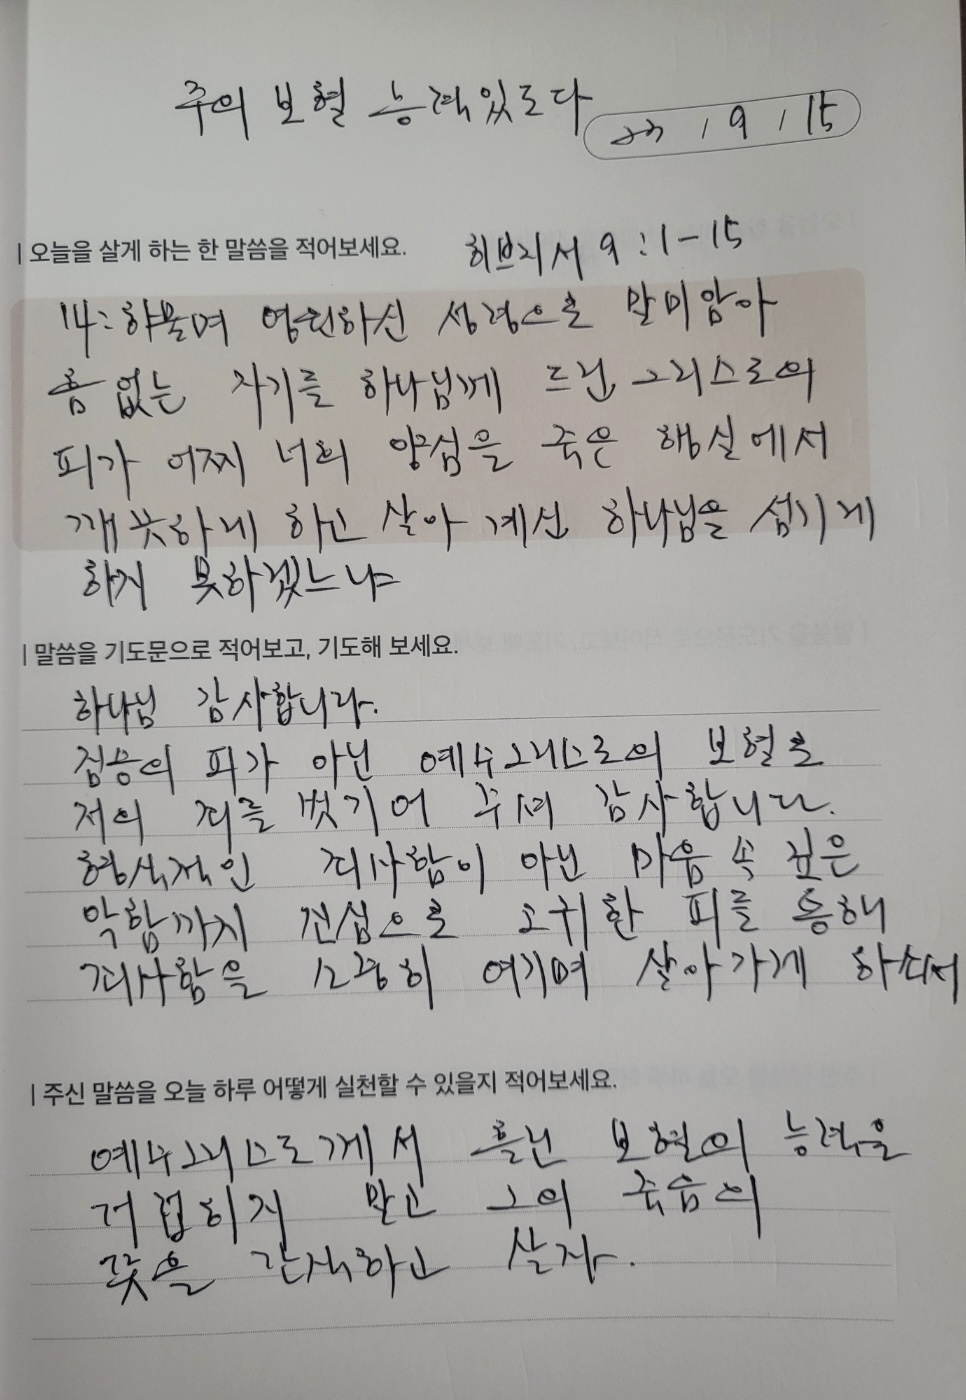 주의 보혈 능력있도다
23 / 9 / 15
| 오늘을 살게 하는 한 말씀을 적어보세요.
히브리서 9 : 1-15
14: 하물며 영원하신 성령으로 말미암아
흠 없는 자기를 하나님께 드린 그리스도의
피가 어찌 너희 양심을 죽은 행실에서
깨끗하게 하고 살아 계신 하나님을 섬기게
하게 못하겠느냐
| 말씀을 기도문으로 적어보고, 기도해 보세요.
하나님 감사합니다.
짐승의 피가 아닌 예수그리스도의 보혈로
저의 죄를 벗기어 주셔 감사합니다.
형식적인 죄사함이 아닌 마음 속 깊은
악함까지 진심으로 고귀한 피를 통해
죄사함을 소중히 여기며 살아가게 하소서
| 주신 말씀을 오늘 하루 어떻게 실천할 수 있을지 적어보세요.
예수그리스도께서 흘린 보혈의 능력을
더럽히지 말고 그의 죽음의
뜻을 간직하고 살자.